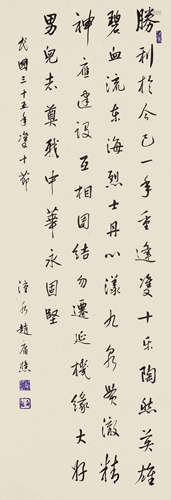 勝利於今已一年重逢雙十樂陶然英雄
碧血流東海烈士丹心漾九泉貫澈精
神應建設互相團結勿遷延機緣大好
男兒志奠我中華永固堅
民國三十五年雙十節
趙廣懋